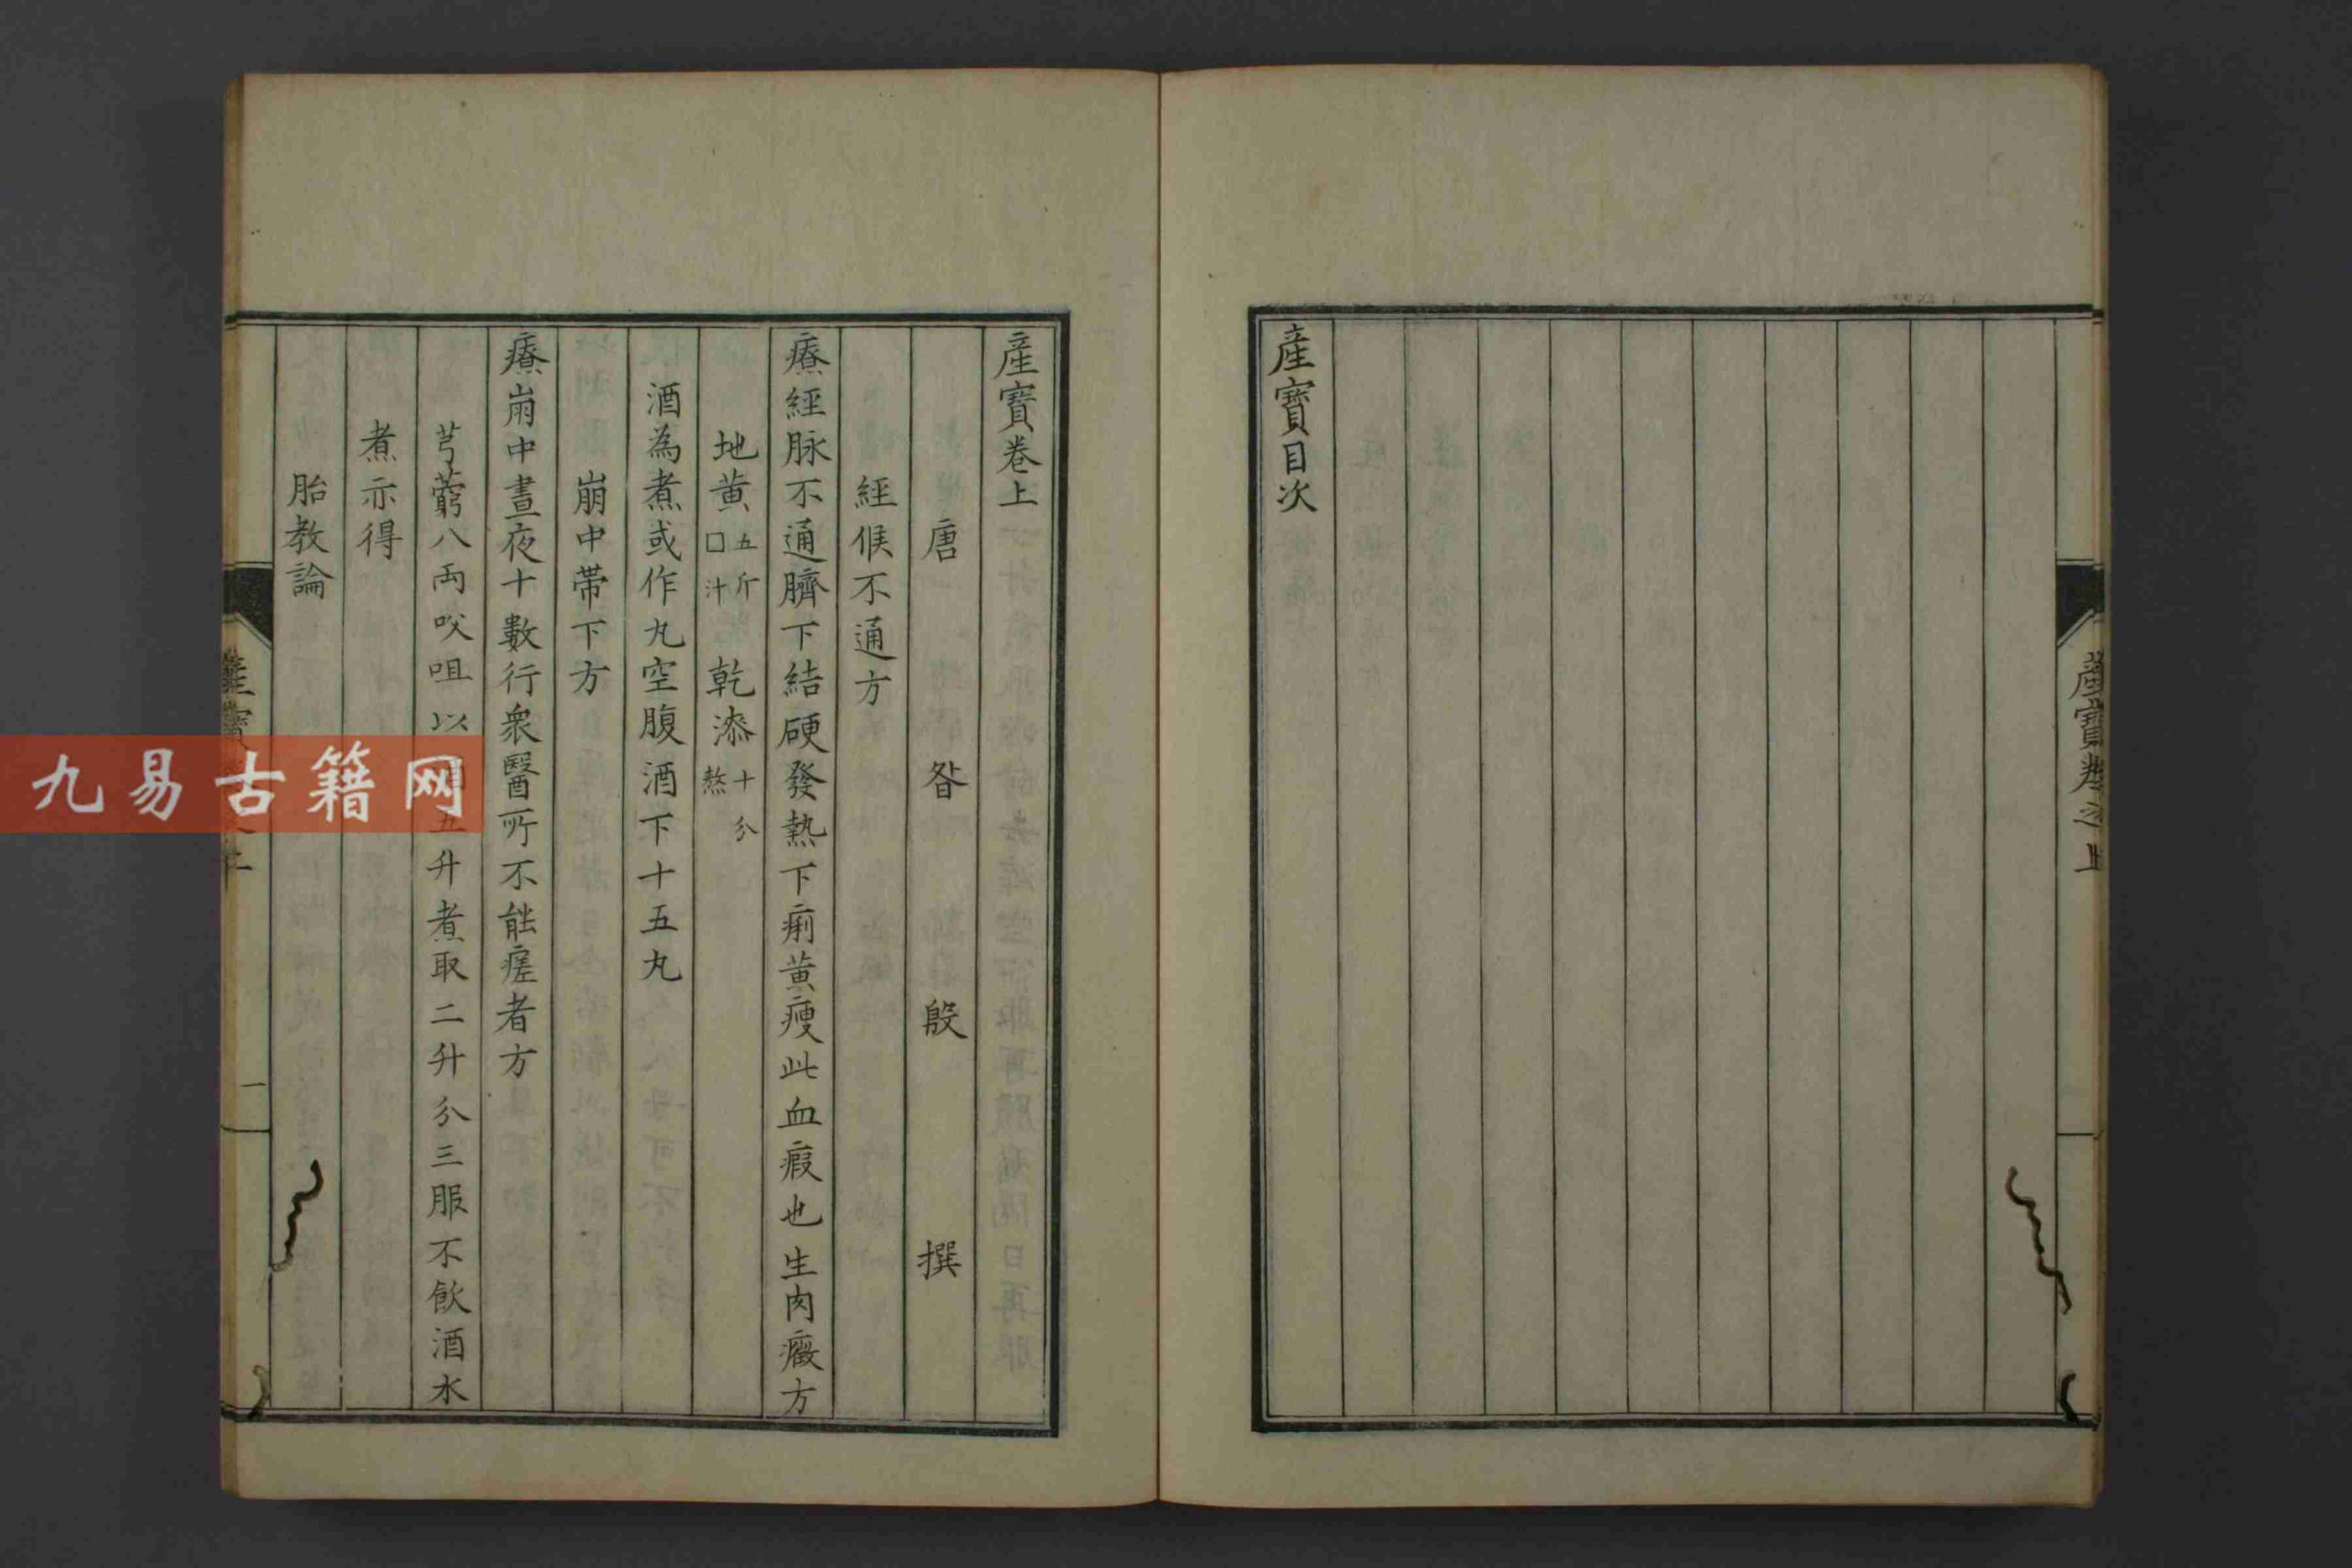 產寶目次
產寶卷之上
產寶卷上
唐 昝 殷 撰
經候不通方
療經脉不通臍下結硬發熱下痢黄瘦此血瘕也生肉癥方
地黄五斤口汁 乾漆十分熬
酒為煮或作丸空腹酒下十五丸
崩中帶下方
療崩中晝夜十數行衆醫所不能瘥者方
芎藭八両㕮咀以酒五升煮取二升分三服不飲酒水
煮亦得
胎教論
產寶
上
一
九易古籍网